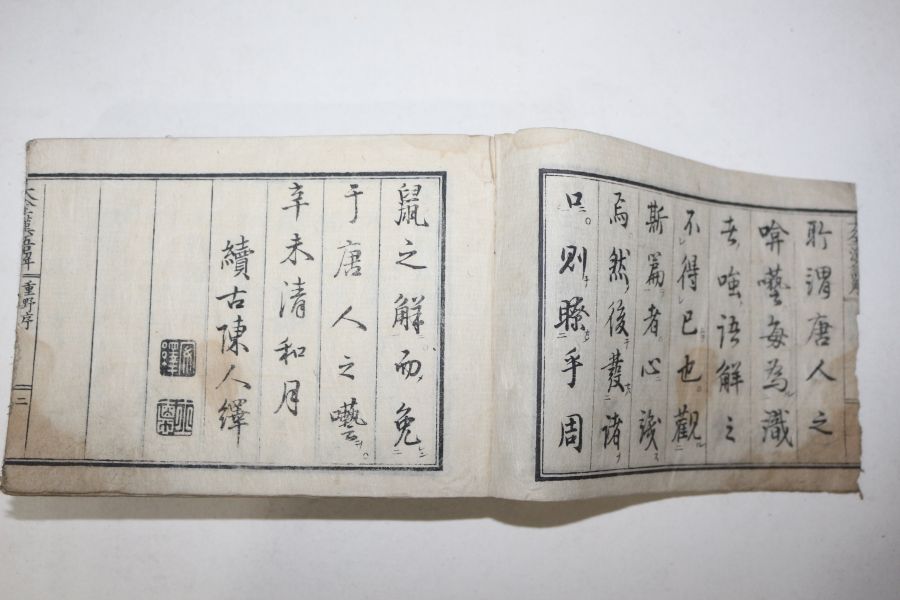 所謂唐人之
啽囈每為識
者嗤語解之
不得已也觀
斯篇者心識
焉然後發諸
口則瞭乎周
鼠之解而免
于唐人之囈
辛未清和月
續古陳人繹
重野序
二